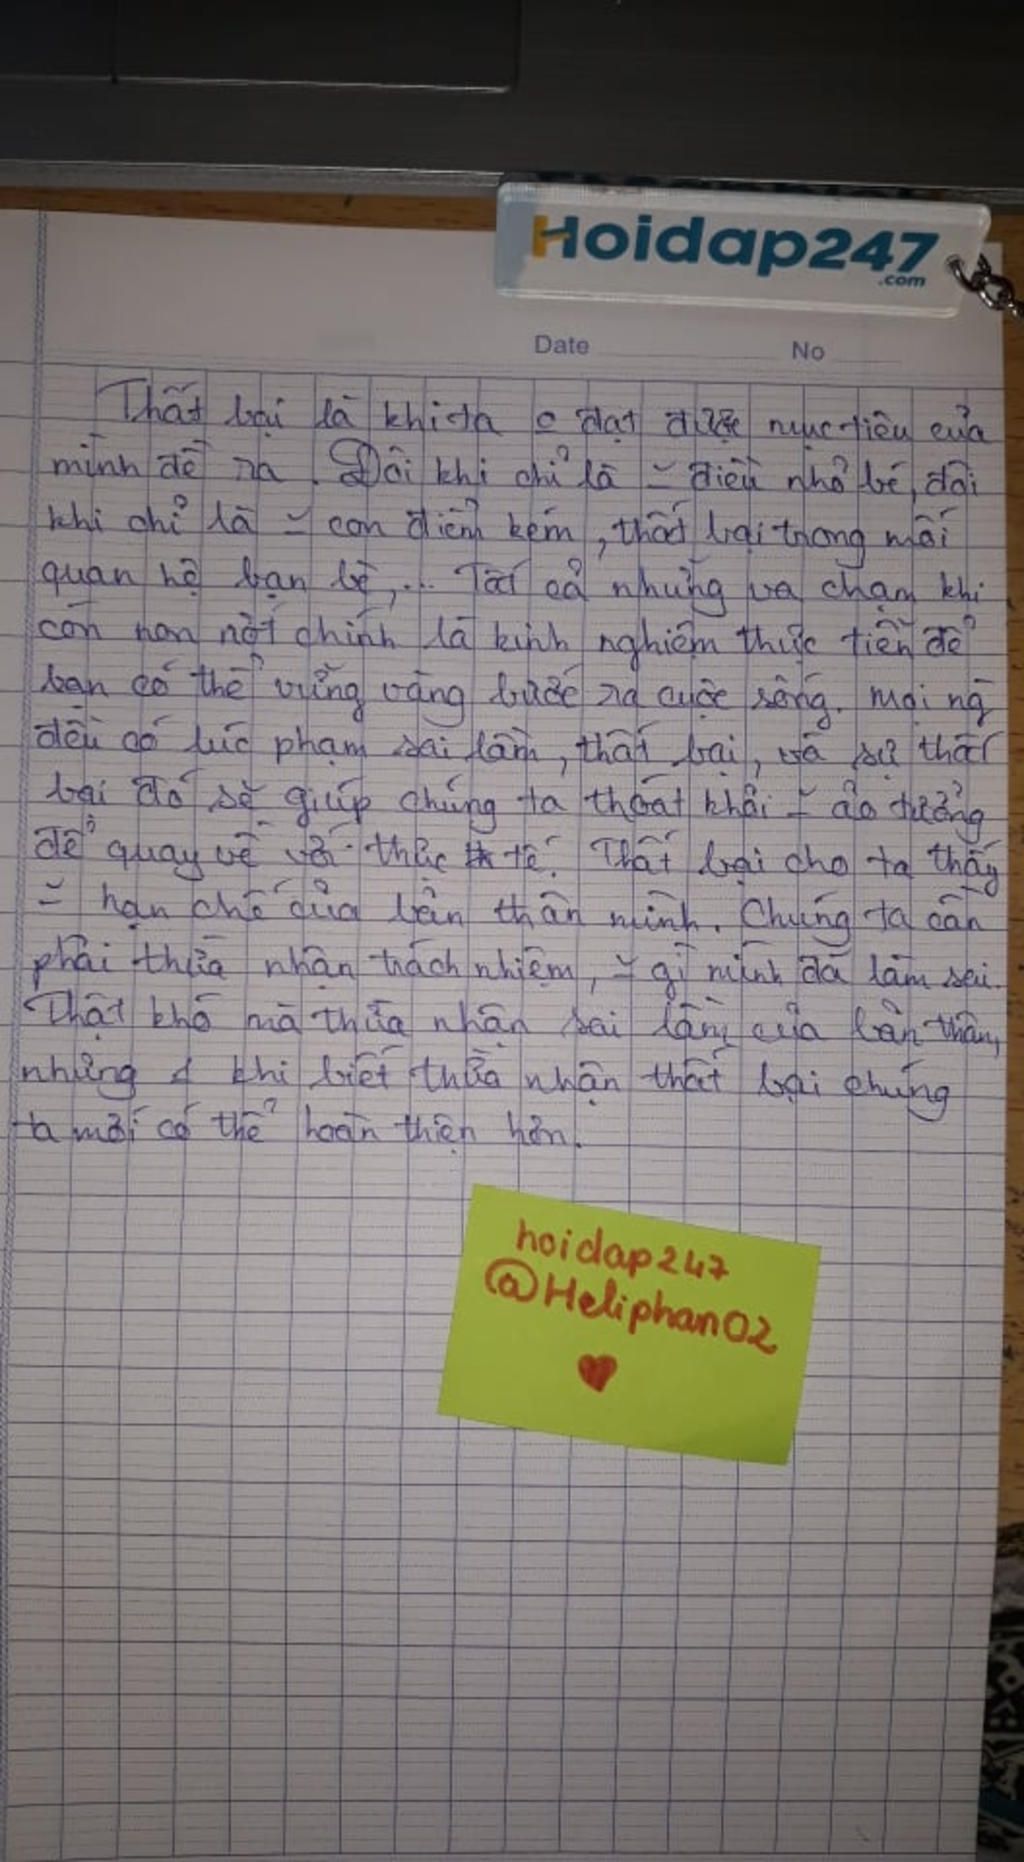 Hoidap247
.com
Date No
Thất bại là khi ta o đạt được mục tiêu của
mình đề ra. Đôi khi chỉ là ~ điều nhỏ bé, đôi
khi chỉ là ~ con điểm kém, thất bại trong mối
quan hệ bạn bè,... Tất cả những va chạm khi
còn non nớt chính là kinh nghiệm thực tiễn để
bạn có thể vững vàng bước ra cuộc sống. Mọi ng
đều có lúc phạm sai lầm, thất bại, và sự thất
bại đó sẽ giúp chúng ta thoát khỏi ~ ảo tưởng
để quay về với thực tế. Thất bại cho ta thấy
~ hạn chế của bản thân mình. Chúng ta cần
phải thừa nhận trách nhiệm, ~ gì mình đã làm sai.
Thật khó mà thừa nhận sai lầm của bản thân,
nhưng khi biết thừa nhận thất bại chúng
ta mới có thể hoàn thiện hơn.
hoidap247
@Heliphan02